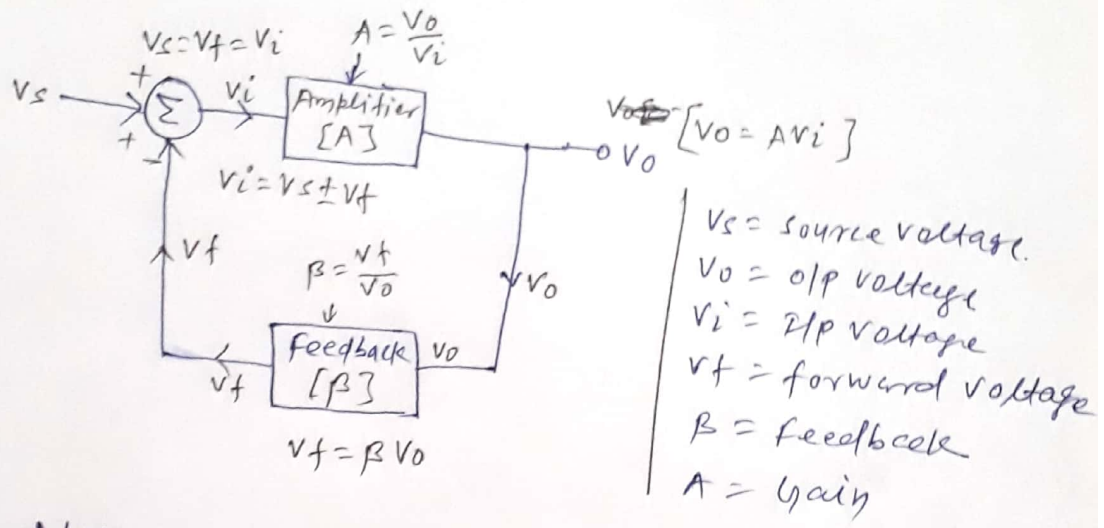 Vs=Vf=Vi
A = Vo/Vi
Vs
+
+
-
Σ
Vi
Amplifier
[A]
Vo
[Vo = AVi]
Vi = Vs ± Vf
Vf
β = Vf/Vo
Vo
Feedback
[β]
Vo
Vf
Vf = β Vo
Vs = source voltage.
Vo = o/p voltage
Vi = I/p voltage
Vf = forward voltage
β = Feedback
A = Gain